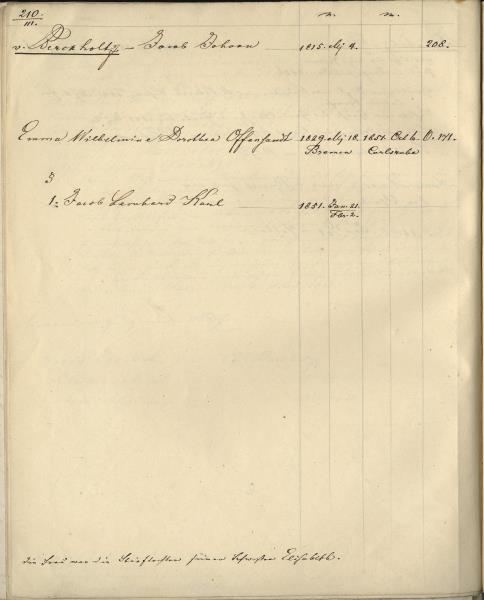 210. n. m.
III.
v. Berckholtz – Jacob Johann 1815. Mj 4. 208.
Emma Wilhelmine Dorothea Offensandt 1829. Mj 18. 1851. Oct 6. O. 171.
Bremen Carlsruhe
1. Jacob Leonhard Karl 1851. Jan. 21.
Fbr. 2.
die Frau war die Stieftochter seiner Schwester Elisabeth.